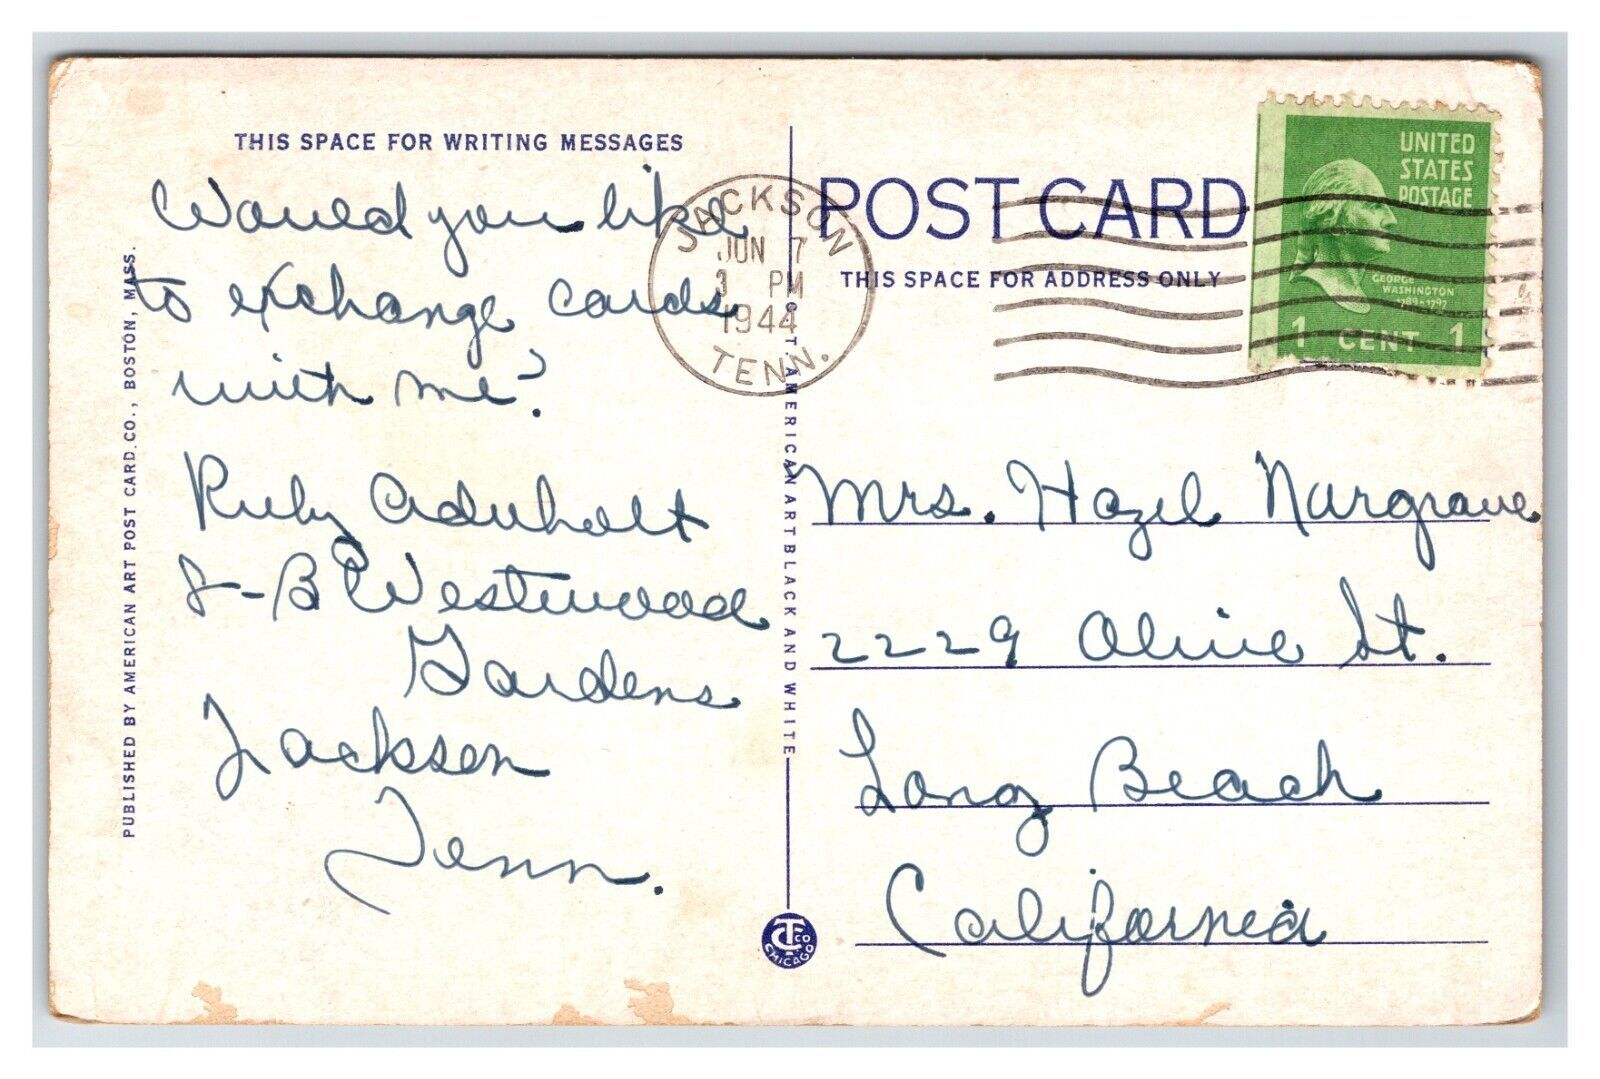 THIS SPACE FOR WRITING MESSAGES
Would you like
to exchange cards
with me?
Ruby Aduholt
8-B Westwood
Gardens
Jackson
Tenn.
PUBLISHED BY AMERICAN ART POST CARD CO., BOSTON, MASS.
JACKSON
JUN 7
3 PM
1944
TENN.
C.T. AMERICAN ART BLACK AND WHITE
CT CO
CHICAGO
POST CARD
THIS SPACE FOR ADDRESS ONLY
UNITED
STATES
POSTAGE
GEORGE
WASHINGTON
1789-1797
1 CENT 1
Mrs. Hazel Nargrave
2229 Olive St.
Long Beach
California